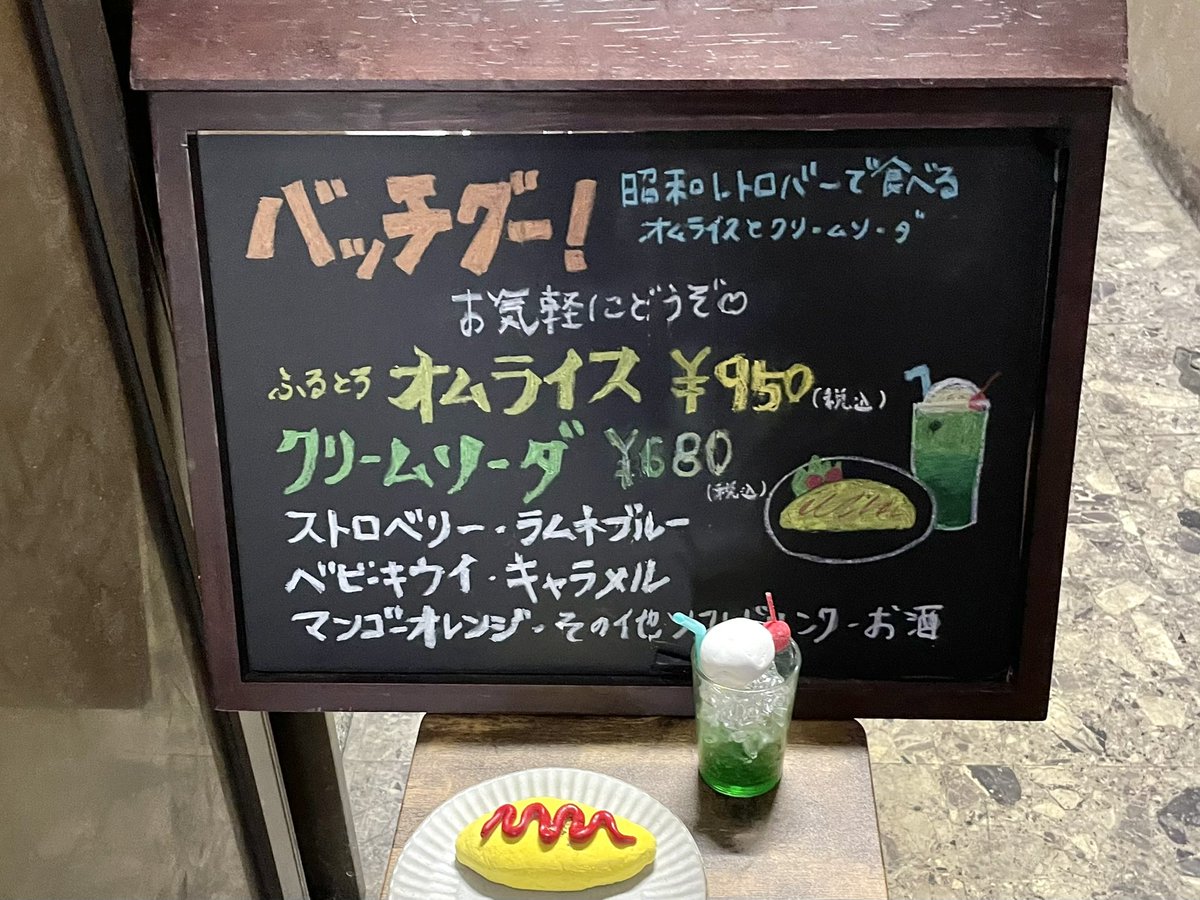 バッチグー!
昭和レトロバーで食べる
オムライスとクリームソーダ
お気軽にどうぞ♡
ふるとろ オムライス ¥950(税込)
クリームソーダ ¥680(税込)
ストロベリー・ラムネブルー
ベビーキウイ・キャラメル
マンゴーオレンジ・その他ソフトドリンク・お酒